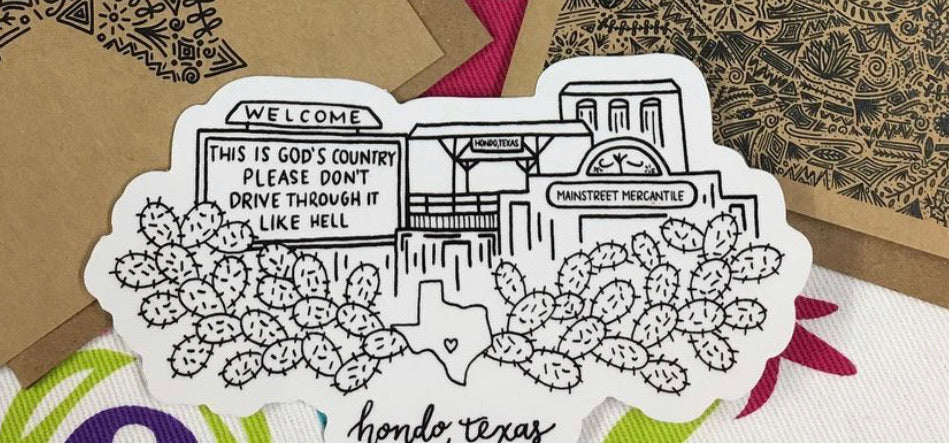 WELCOME
THIS IS GOD'S COUNTRY
PLEASE DON'T
DRIVE THROUGH IT
LIKE HELL
HONDO, TEXAS
MAINSTREET MERCANTILE
hondo, texas